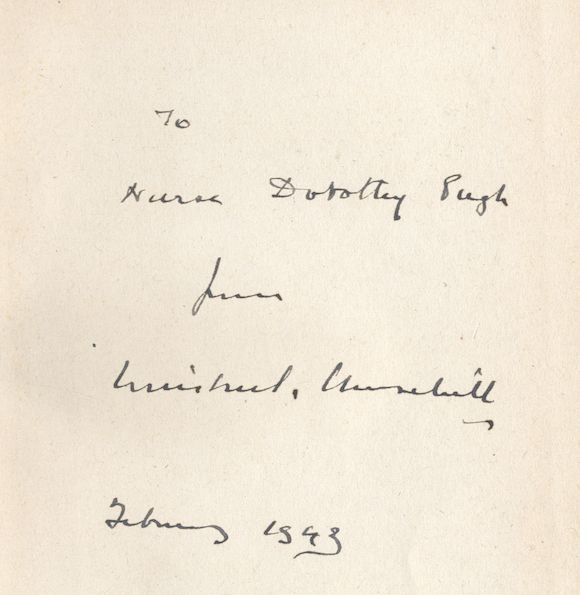 To
Nurse Dorothy Pugh
from
Winston S. Churchill
February 1943